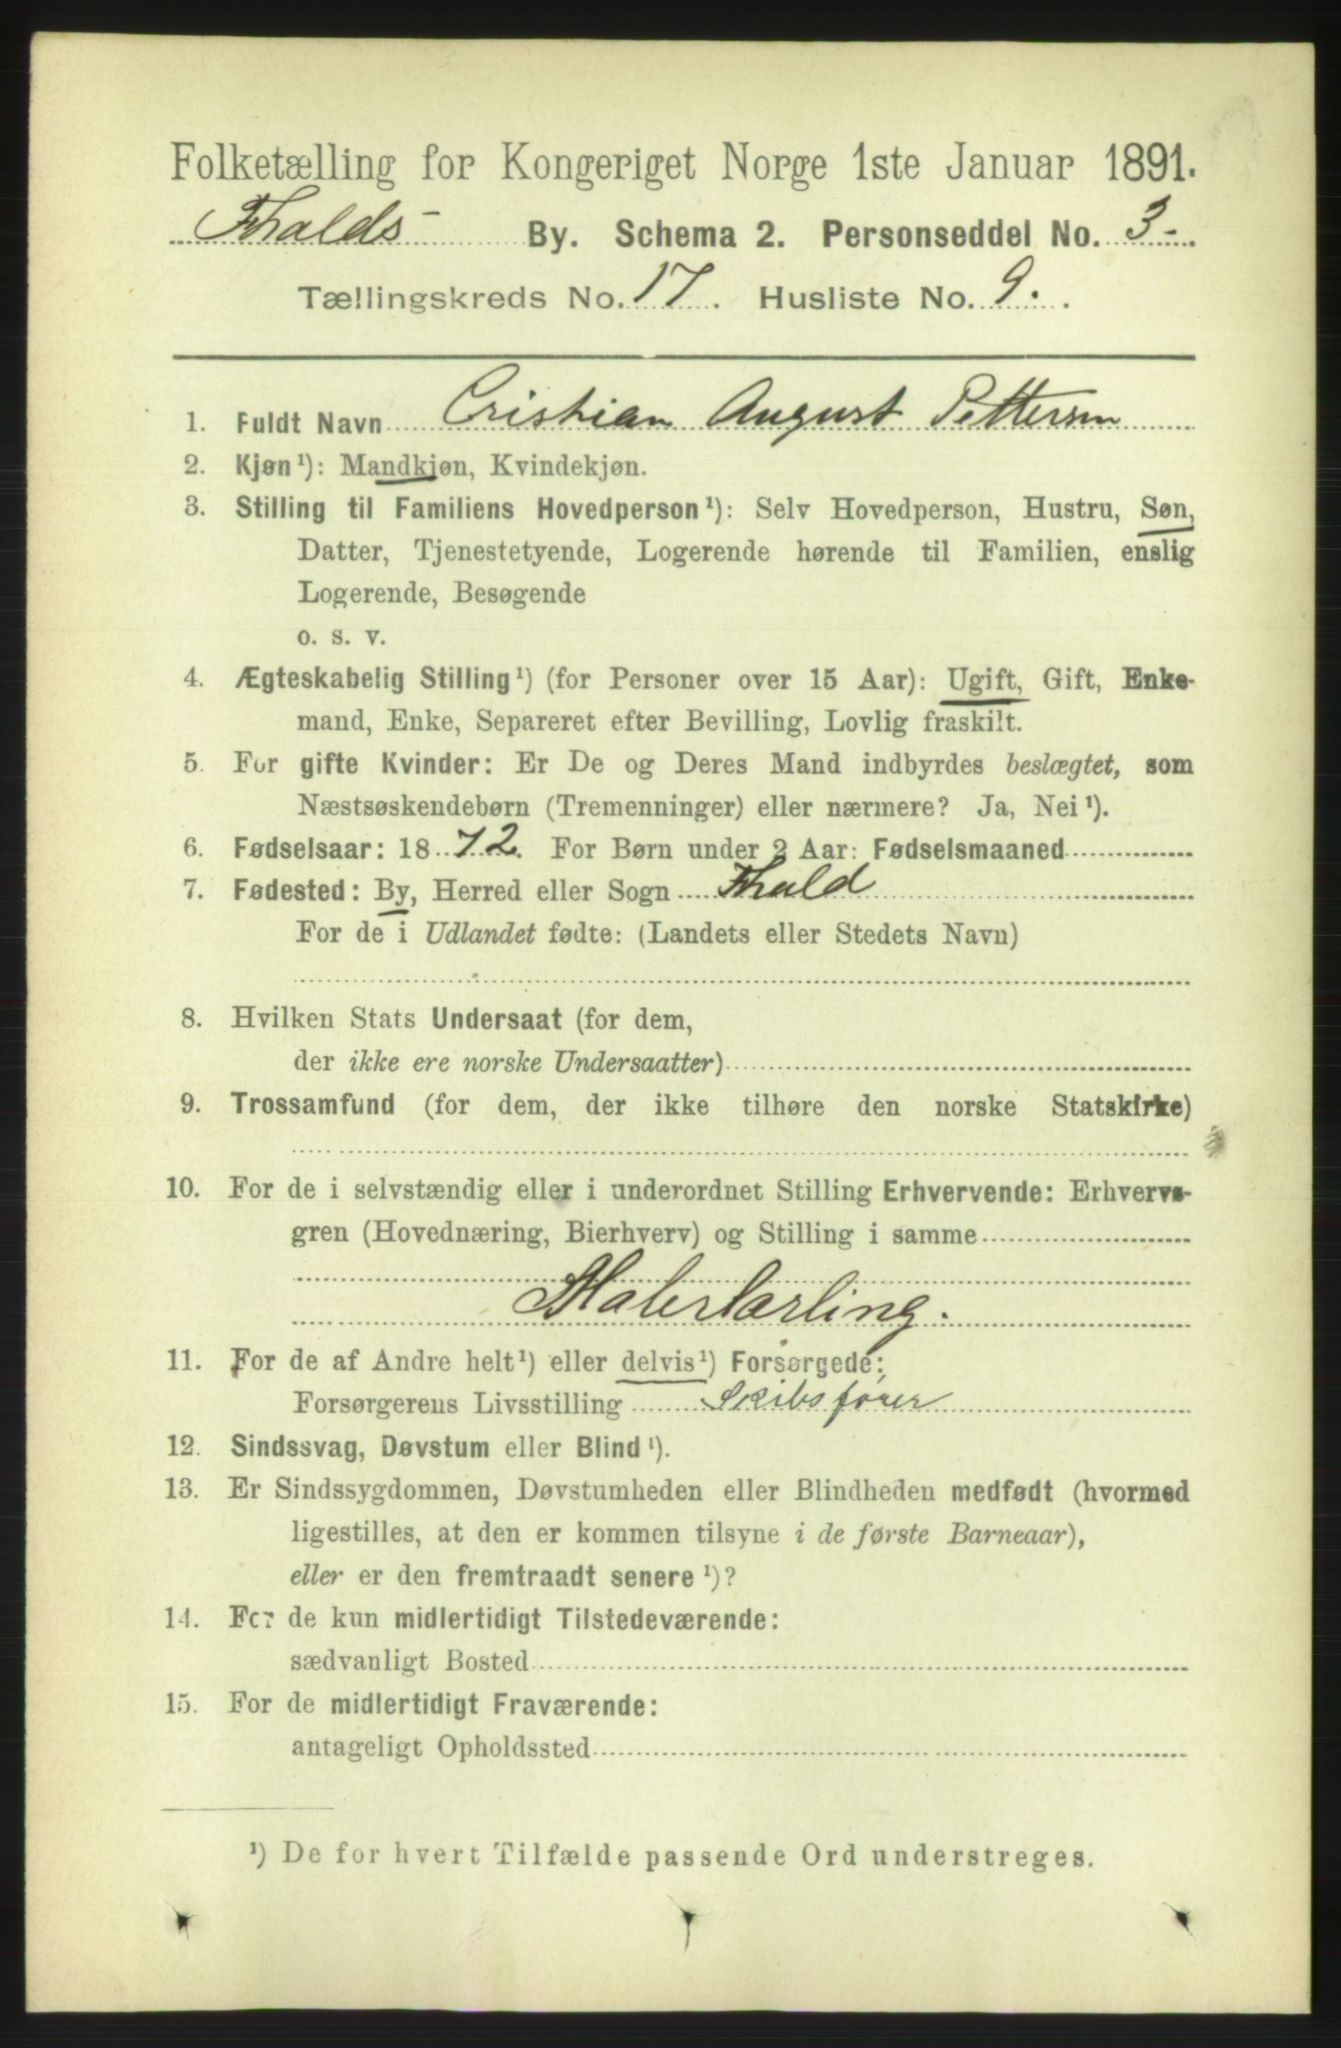 Folketælling for Kongeriget Norge 1ste Januar 1891.
Fhalds By. Schema 2. Personseddel No. 3-
Tællingskreds No. 17. Husliste No. 9.
1. Fuldt Navn Cristian August Pettersen
2. Kjøn¹): Mandkjøn, Kvindekjøn.
3. Stilling til Familiens Hovedperson¹): Selv Hovedperson, Hustru, Søn,
Datter, Tjenestetyende, Logerende hørende til Familien, enslig
Logerende, Besøgende
o. s. v.
4. Ægteskabelig Stilling¹) (for Personer over 15 Aar): Ugift, Gift, Enke-
mand, Enke, Separeret efter Bevilling, Lovlig fraskilt.
5. For gifte Kvinder: Er De og Deres Mand indbyrdes beslægtet, som
Næstsøskendebørn (Tremenninger) eller nærmere? Ja, Nei¹).
6. Fødselsaar: 1872. For Børn under 2 Aar: Fødselsmaaned
7. Fødested: By, Herred eller Sogn Fhald
For de i Udlandet fødte: (Landets eller Stedets Navn)
8. Hvilken Stats Undersaat (for dem,
der ikke ere norske Undersaatter)
9. Trossamfund (for dem, der ikke tilhøre den norske Statskirke)
10. For de i selvstændig eller i underordnet Stilling Erhvervende: Erhvervs-
gren (Hovednæring, Bierhverv) og Stilling i samme
Malerlærling.
11. For de af Andre helt¹) eller delvis¹) Forsørgede:
Forsørgerens Livsstilling Skibsfører
12. Sindssvag, Døvstum eller Blind¹).
13. Er Sindssygdommen, Døvstumheden eller Blindheden medfødt (hvormed
ligestilles, at den er kommen tilsyne i de første Barneaar),
eller er den fremtraadt senere¹)?
14. For de kun midlertidigt Tilstedeværende:
sædvanligt Bosted
15. For de midlertidigt Fraværende:
antageligt Opholdssted
¹) De for hvert Tilfælde passende Ord understreges.